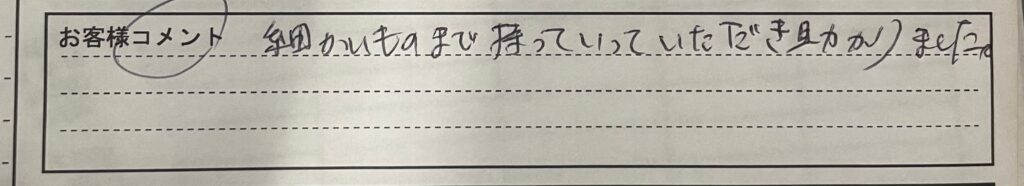 お客様コメント 細かいものまで持っていっていただき助かりました。